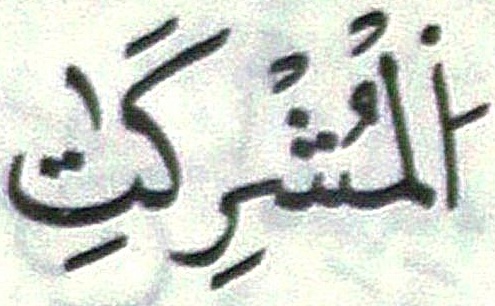 اَ۬لْمُشْرِكَٰتِ